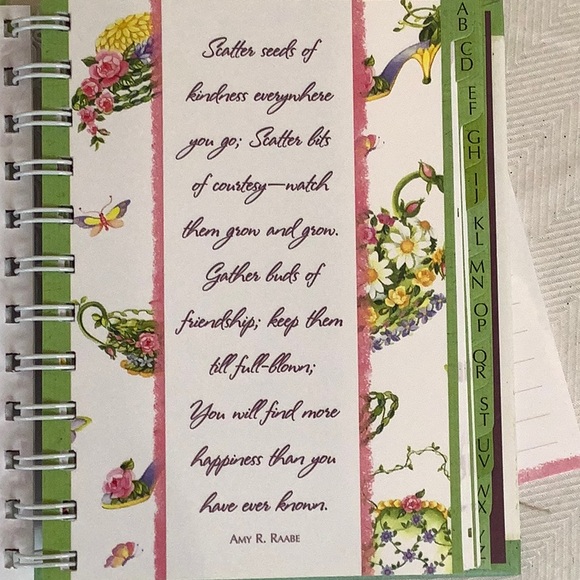 Scatter seeds of
kindness everywhere
you go; Scatter bits
of courtesy—watch
them grow and grow.
Gather buds of
friendship; keep them
till full-blown;
You will find more
happiness than you
have ever known.
AMY R. RAABE
AB
CD
EF
GH
IJ
KL
MN
OP
QR
ST
UV
WX
YZ